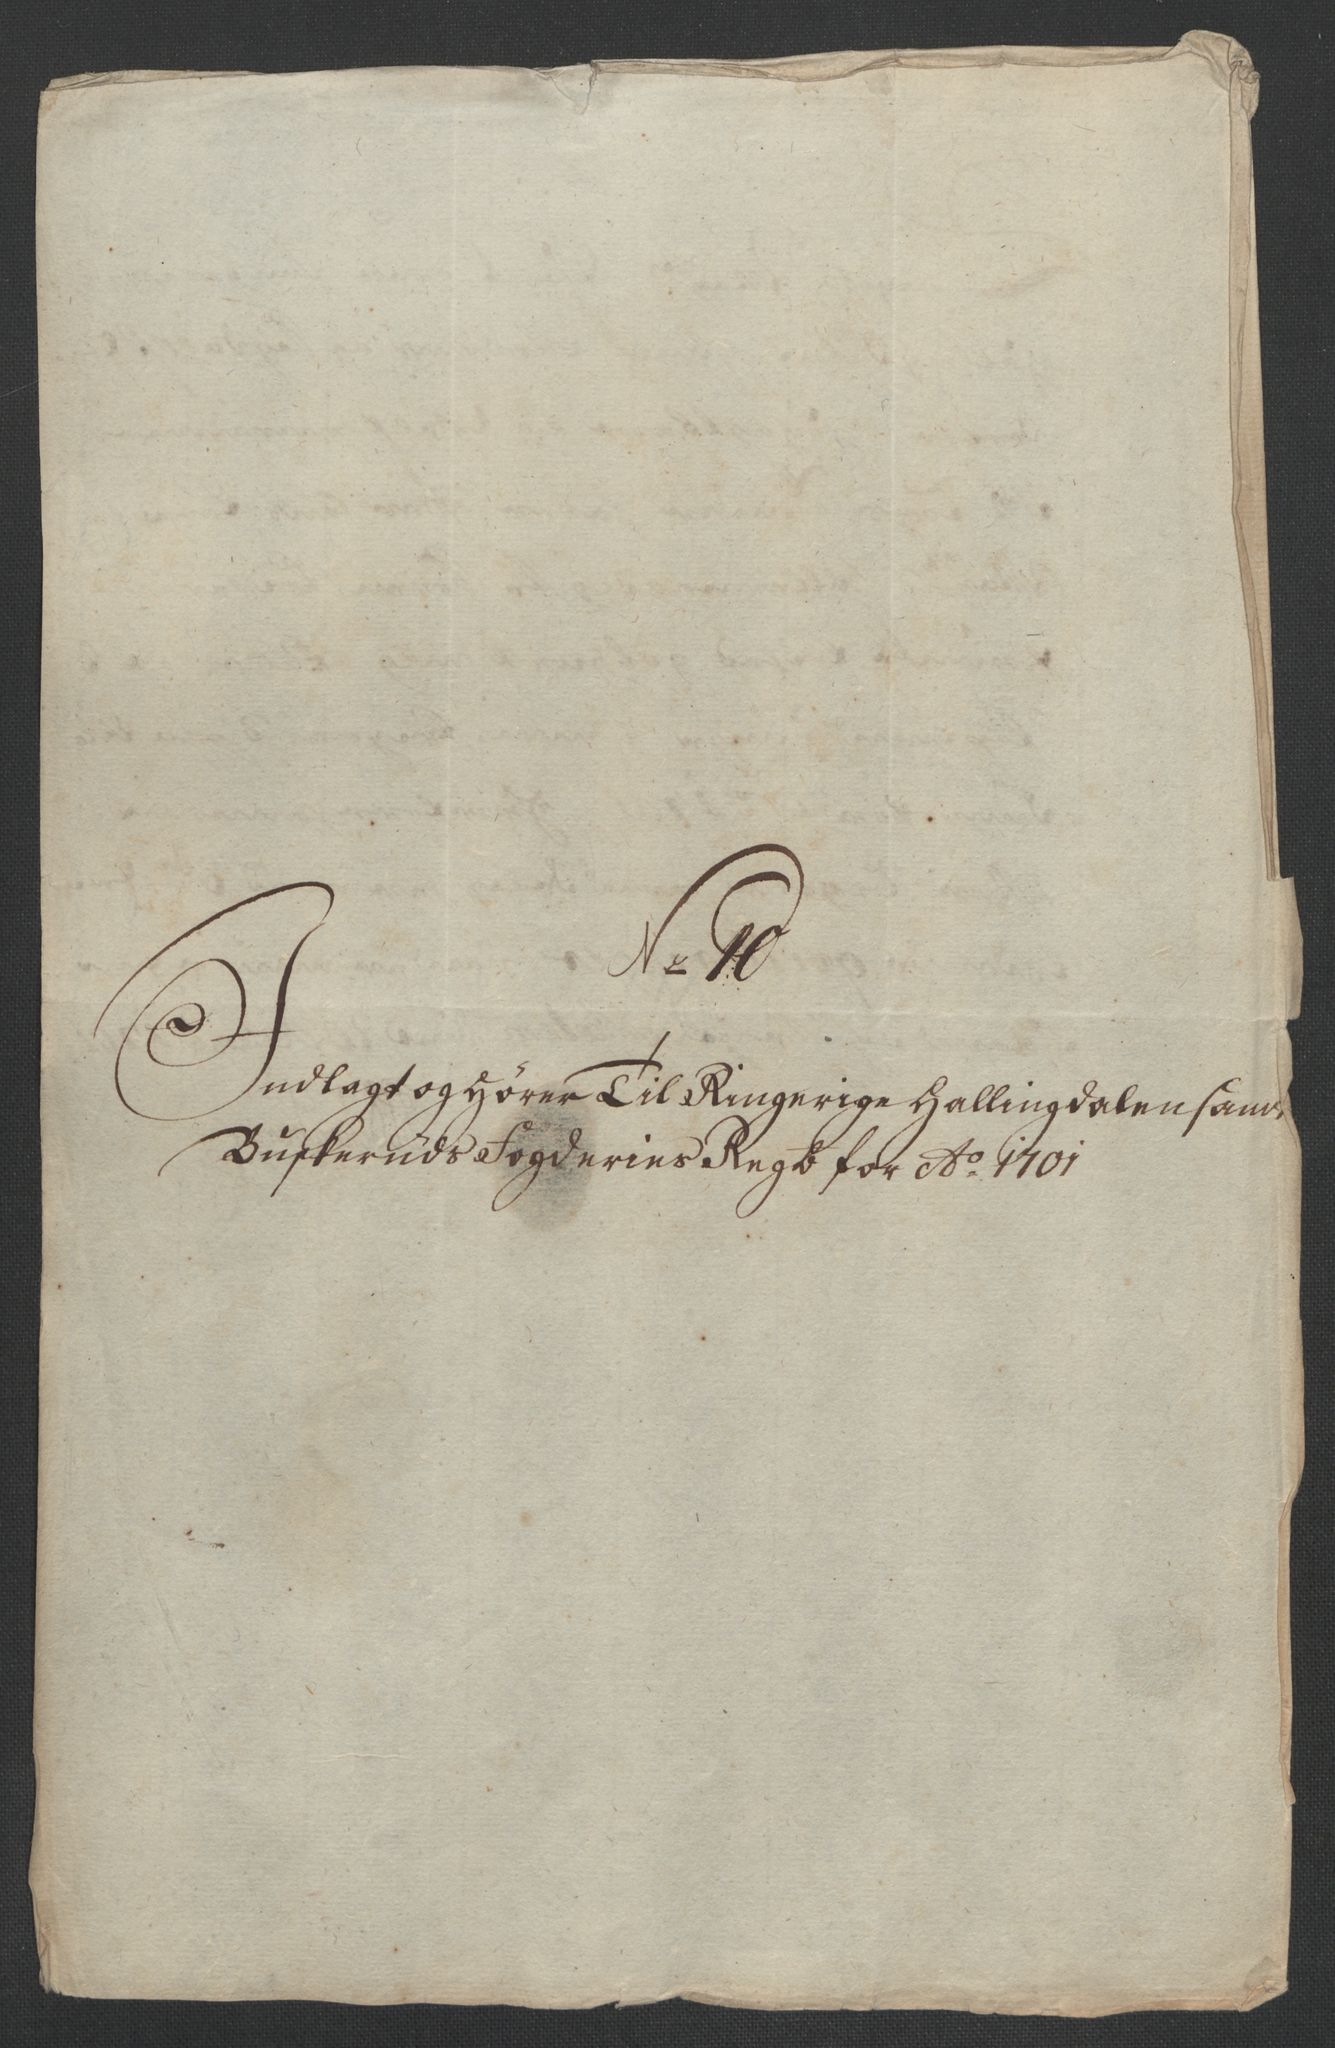 No 10
Indlagt og Hører Til Ringerige Hallingdalen samt
Buskeruds Fogderies Regsb for Ao 1701